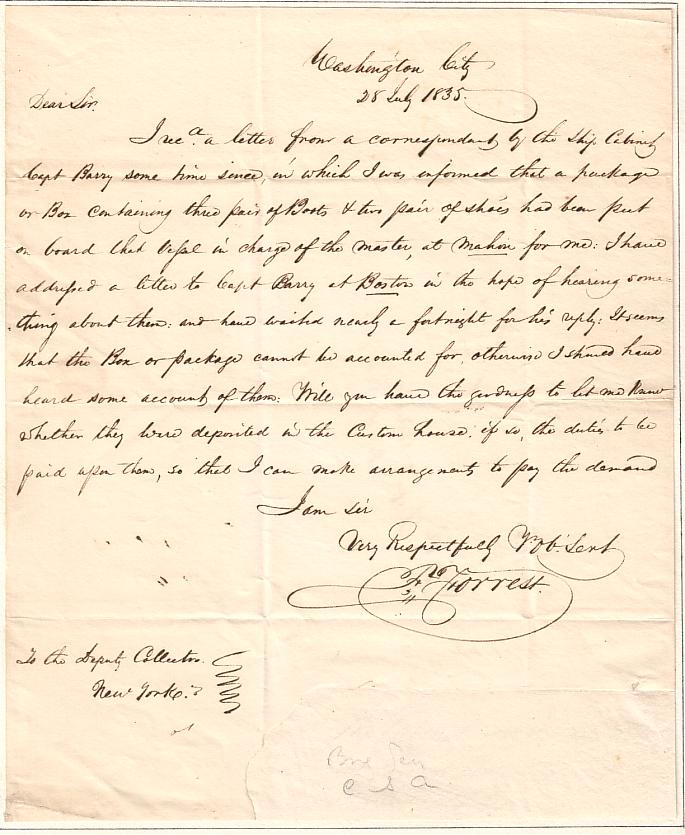 Washington City
28 July 1835.
Dear Sir.
I recd. a letter from a correspondant by the Ship Cabinet
Capt Barry some time since, in which I was informed that a package
or Box containing three pair of Boots & two pair of shoes had been put
on board that Vessel in charge of the master, at Mahon for me: I have
addressed a letter to Capt Barry at Boston in the hope of hearing some=
=thing about them: and have waited nearly a fortnight for his reply: It seems
that the Box or package cannot be accounted for, otherwise I should have
heard some account of them: Will you have the goodness to let me know
whether they were deposited in the Custom house: if so, the duties to be
paid upon them, so that I can make arrangements to pay the demand
I am sir
Very Respectfully Yr Ob. Servt
Forrest.
To the Deputy Collector.
New York.
C S A